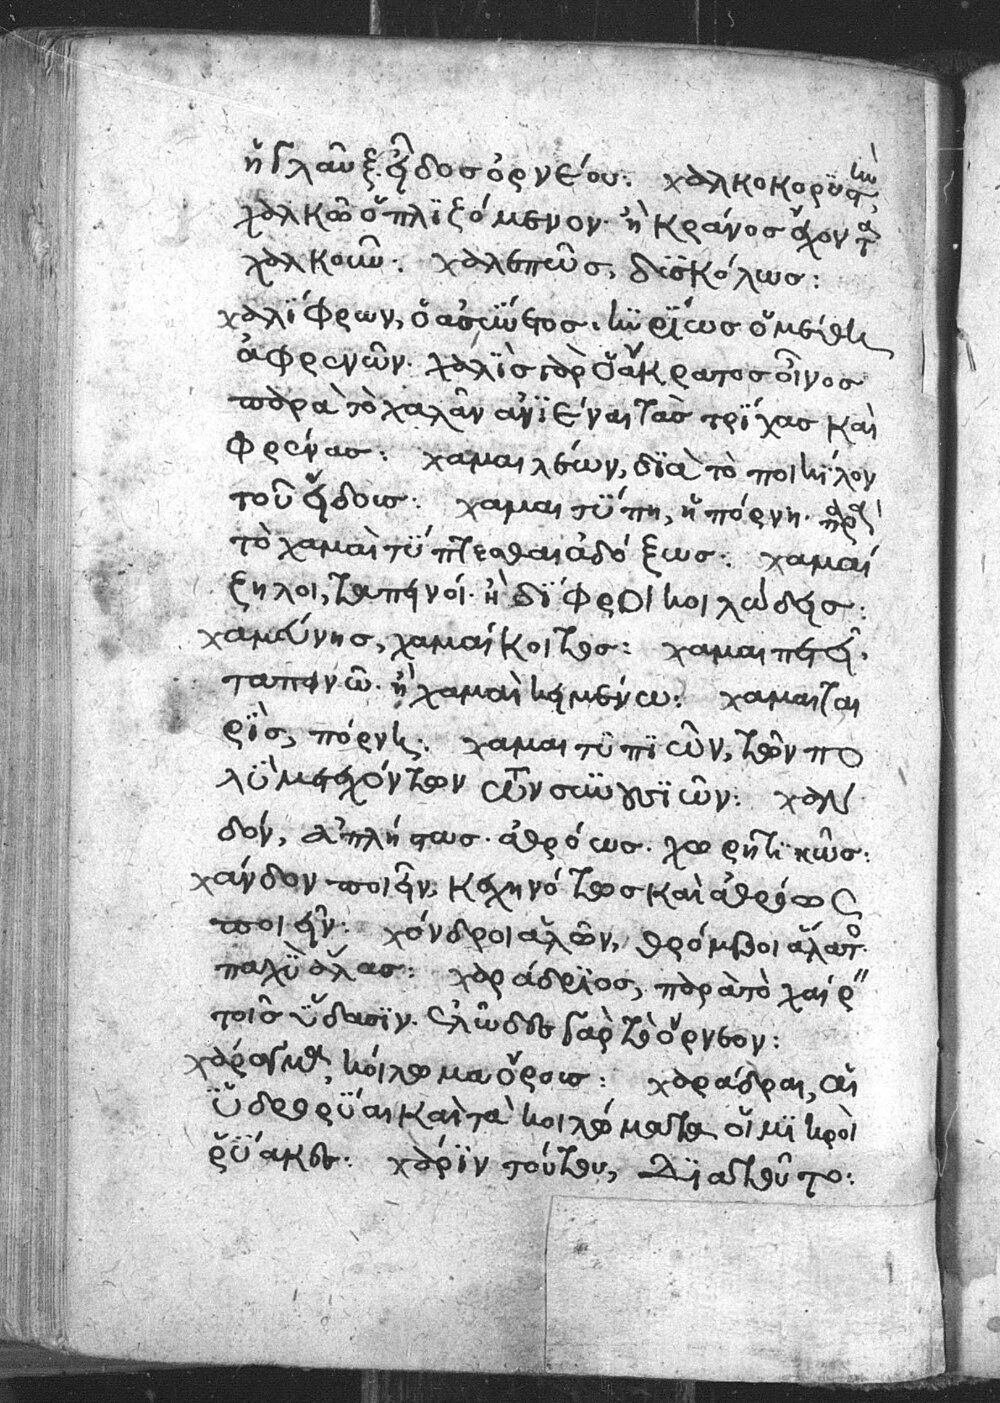 ἢ γλαῦξ. εἶδος ὀρνέου: χαλκοκορϋστὴν
χαλκῶ ὁπλϊζόμενον. ἢ κράνος ἔχοντα
χαλκοῦν: χαλεπῶς, δϋσκόλως:
χαλΐφρων, ὁ ἀσΰνετος. κϋρΐως ὁ μέθη
ἀφρενῶν. χάλϊς γὰρ ὁ ἄκρατος οἶνος
παρὰ τὸ χαλᾶν ἀνϊέναι τὰς τρΐχας καὶ
φρένας: χαμαιλέων, δϊὰ τὸ ποικΐλον
τοῦ εἴδους: χαμαιτΰπη, ἡ πόρνη. παρὰ
τὸ χαμαὶ τΰπτεσθαι ἀδόξως: χαμαί
ζηλοι, ταπεινοί. ἢ δΐφροι κοιλώδεις:
χαμεύνης, χαμαίκοιτος: χαμαιπετεῖ,
ταπεινῶ. ἢ χαμαὶ κειμένω: χαμαιται
ρΐς, πόρνη: χαμαιτϋπϊῶν, τῶν πο
λϋμετεχόντων τῶν σϋνουσϊῶν: χαν
δόν, ἀπλήστως. ἀθρόως. χωρητϊκῶς:
χάνδον ποιεῖν, κεχηνότως καὶ ἀθρόως
ποιεῖν: χόνδροι ἁλῶν, θρόμβοι ἅλατος
παχϋὅλας: χαράδρϊος, παρὰ τὸ χαίρειν
τοῖς ὕδασϊν. ἑλῶδες γὰρ τὸ ὄρνεον:
χάραγμα, κοίλωμα ὄρους: χαράδραι, αἱ
ὑδρορΰαι καὶ τὰ κοιλώματα οἱ μϊκροὶ
ῥΰακες: χάρϊν τούτου, δϊὰ τοῦτο: